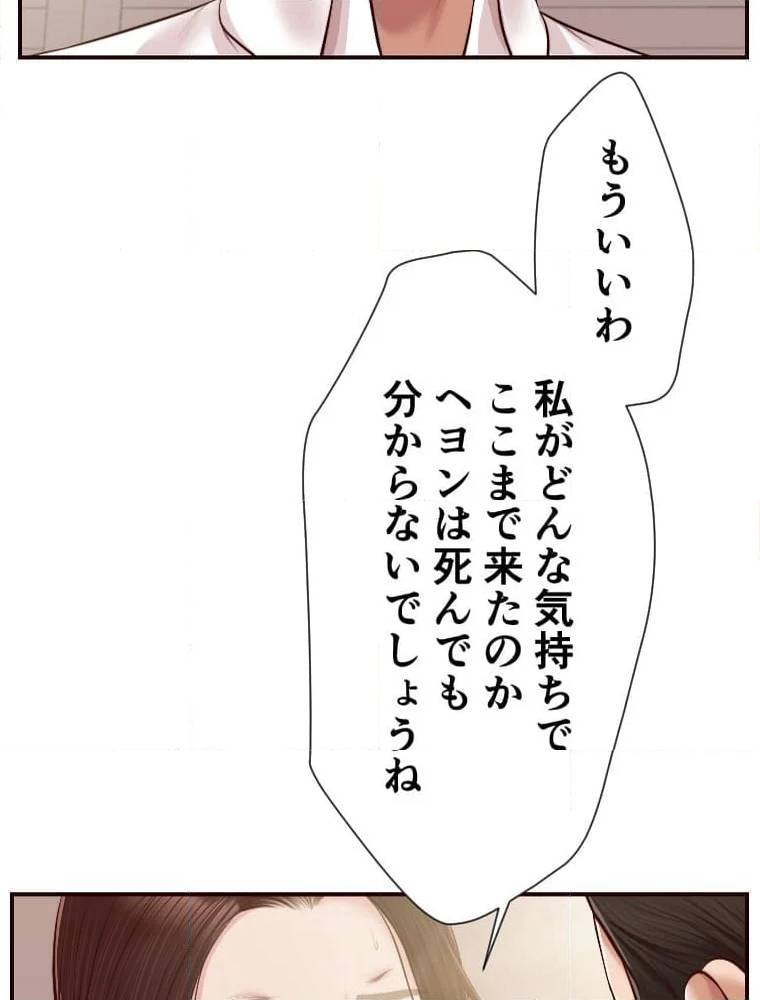 もういいわ
私がどんな気持ちで
ここまで来たのか
ヘヨンは死んでも
分からないでしょうね